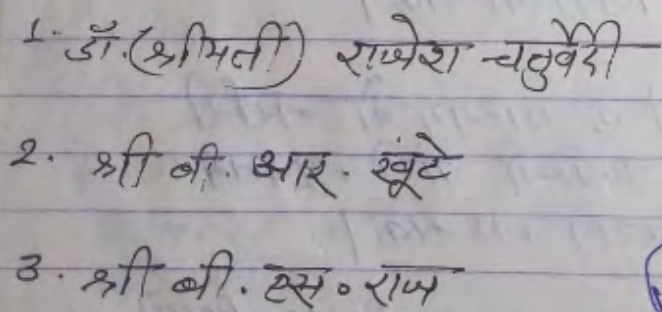 1. डॉ. (श्रीमती) राजेश चतुर्वेदी
2. श्री बी. आर. खूंटे
3. श्री बी. एस. राज